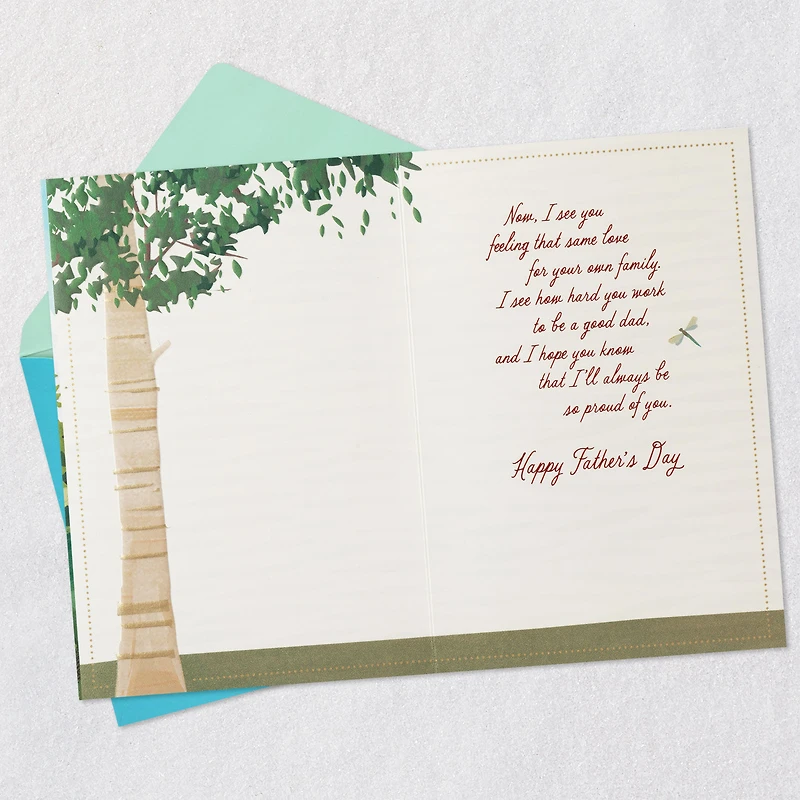 Now, I see you
feeling that same love
for your own family.
I see how hard you work
to be a good dad,
and I hope you know
that I'll always be
so proud of you.
Happy Father's Day